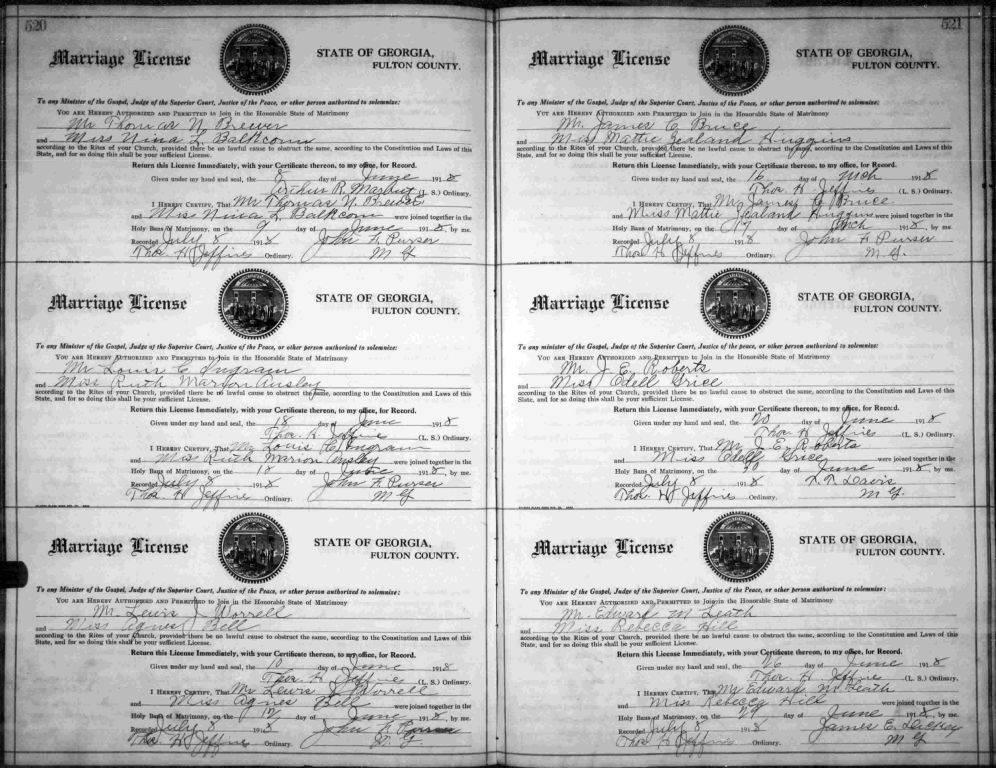 520
Marriage License
STATE OF GEORGIA,
FULTON COUNTY.
To any Minister of the Gospel, Judge of the Superior Court, Justice of the Peace, or other person authorized to solemnize:
YOU ARE HEREBY AUTHORIZED AND PERMITTED to Join in the Honorable State of Matrimony
Mr Thomas N Brewer
and Miss Nina L Balkcom
according to the Rites of your Church, provided there be no lawful cause to obstruct the same, according to the Constitution and Laws of this
State, and for so doing this shall be your sufficient License.
Return this License Immediately, with your Certificate thereon, to my office, for Record.
Given under my hand and seal, the 8 day of June 1918
Arthur R Marbut (L. S.) Ordinary.
I HEREBY CERTIFY, That Mr Thomas N. Brewer
and Miss Nina L Balkcom were joined together in the
Holy Bans of Matrimony, on the 9 day of June 1918, by me.
Recorded July 8 1918 John F. Purser
Thos H Jeffries Ordinary. M G
Marriage License
STATE OF GEORGIA,
FULTON COUNTY.
To any Minister of the Gospel, Judge of the Superior Court, Justice of the Peace, or other person authorized to solemnize:
YOU ARE HEREBY AUTHORIZED AND PERMITTED to Join in the Honorable State of Matrimony
Mr Louis C Ingram
and Miss Ruth Marion Ansley
according to the Rites of your Church, provided there be no lawful cause to obstruct the same, according to the Constitution and Laws of this
State, and for so doing this shall be your sufficient License.
Return this License Immediately, with your Certificate thereon, to my office, for Record.
Given under my hand and seal, the 18 day of June 1918
Thos. H Jeffries (L. S.) Ordinary.
I HEREBY CERTIFY, That Mr Louis C Ingram
and Miss Ruth Marion Ansley were joined together in the
Holy Bans of Matrimony, on the 18 day of June 1918, by me.
Recorded July 8 1918 John F. Purser
Thos H Jeffries Ordinary. M G
Marriage License
STATE OF GEORGIA,
FULTON COUNTY.
To any Minister of the Gospel, Judge of the Superior Court, Justice of the Peace, or other person authorized to solemnize:
YOU ARE HEREBY AUTHORIZED AND PERMITTED to Join in the Honorable State of Matrimony
Mr Lewis J Worrell
and Miss Agnes Bell
according to the Rites of your Church, provided there be no lawful cause to obstruct the same, according to the Constitution and Laws of this
State, and for so doing this shall be your sufficient License.
Return this License Immediately, with your Certificate thereon, to my office, for Record.
Given under my hand and seal, the 10 day of June 1918
Thos. H Jeffries (L. S.) Ordinary.
I HEREBY CERTIFY, That Mr Lewis J Worrell
and Miss Agnes Bell were joined together in the
Holy Bans of Matrimony, on the 12 day of June 1918, by me.
Recorded July 8 1918 John F Purser
Thos H Jeffries Ordinary. M G
521
Marriage License
STATE OF GEORGIA,
FULTON COUNTY.
To any Minister of the Gospel, Judge of the Superior Court, Justice of the Peace, or other person authorized to solemnize:
YOU ARE HEREBY AUTHORIZED AND PERMITTED to Join in the Honorable State of Matrimony
Mr. James C Bruce
and Miss Mattie Zealand Huggins
according to the Rites of your Church, provided there be no lawful cause to obstruct the same, according to the Constitution and Laws of this
State, and for so doing this shall be your sufficient License.
Return this License Immediately, with your Certificate thereon, to my office, for Record.
Given under my hand and seal, the 16 day of Mch 1918
Thos H Jeffries (L. S.) Ordinary.
I HEREBY CERTIFY, That Mr James C Bruce
and Miss Mattie Zealand Huggins were joined together in the
Holy Bans of Matrimony, on the 17 day of Mch 1918, by me.
Recorded July 8 1918 John F Purser
Thos H Jeffries Ordinary. M G.
Marriage License
STATE OF GEORGIA,
FULTON COUNTY.
To any minister of the Gospel, Judge of the Superior Court, Justice of the peace, or other person authorized to solemnize:
YOU ARE HEREBY AUTHORIZED AND PERMITTED to Join in the Honorable State of Matrimony
Mr. J E Roberts
and Miss Odell Grice
according to the Rites of your Church, provided there be no lawful cause to obstruct the same, according to the Constitution and Laws of this
State, and for so doing this shall be your sufficient License.
Return this License Immediately, with your Certificate thereon, to my office, for Record.
Given under my hand and seal, the 20 day of June 1918
Thos H Jeffries (L. S.) Ordinary.
I HEREBY CERTIFY, That Mr J. E. Roberts
and Miss Odell Grice were joined together in the
Holy Bans of Matrimony, on the 20 day of June 1918, by me.
Recorded July 8 1918 Davis
Thos. H Jeffries Ordinary. M G.
Marriage License
STATE OF GEORGIA,
FULTON COUNTY.
To any Minister of the Gospel, Judge of the Superior Court, Justice of the Peace, or other person authorized to solemnize:
YOU ARE HEREBY AUTHORIZED AND PERMITTED to Join in the Honorable State of Matrimony
Mr. Edward M Leath
and Miss Rebecca Hill
according to the Rites of your Church, provided there be no lawful cause to obstruct the same, according to the Constitution and Laws of this
State, and for so doing this shall be your sufficient License.
Return this License Immediately, with your Certificate thereon, to my office, for Record.
Given under my hand and seal, the 26 day of June 1918
Thos. H Jeffries (L. S.) Ordinary.
I HEREBY CERTIFY, That Mr Edward M Leath
and Miss Rebecca Hill were joined together in the
Holy Bans of Matrimony, on the 29 day of June 1918, by me.
Recorded July 8 1918 James E. Dickey
Thos H Jeffries Ordinary. M G